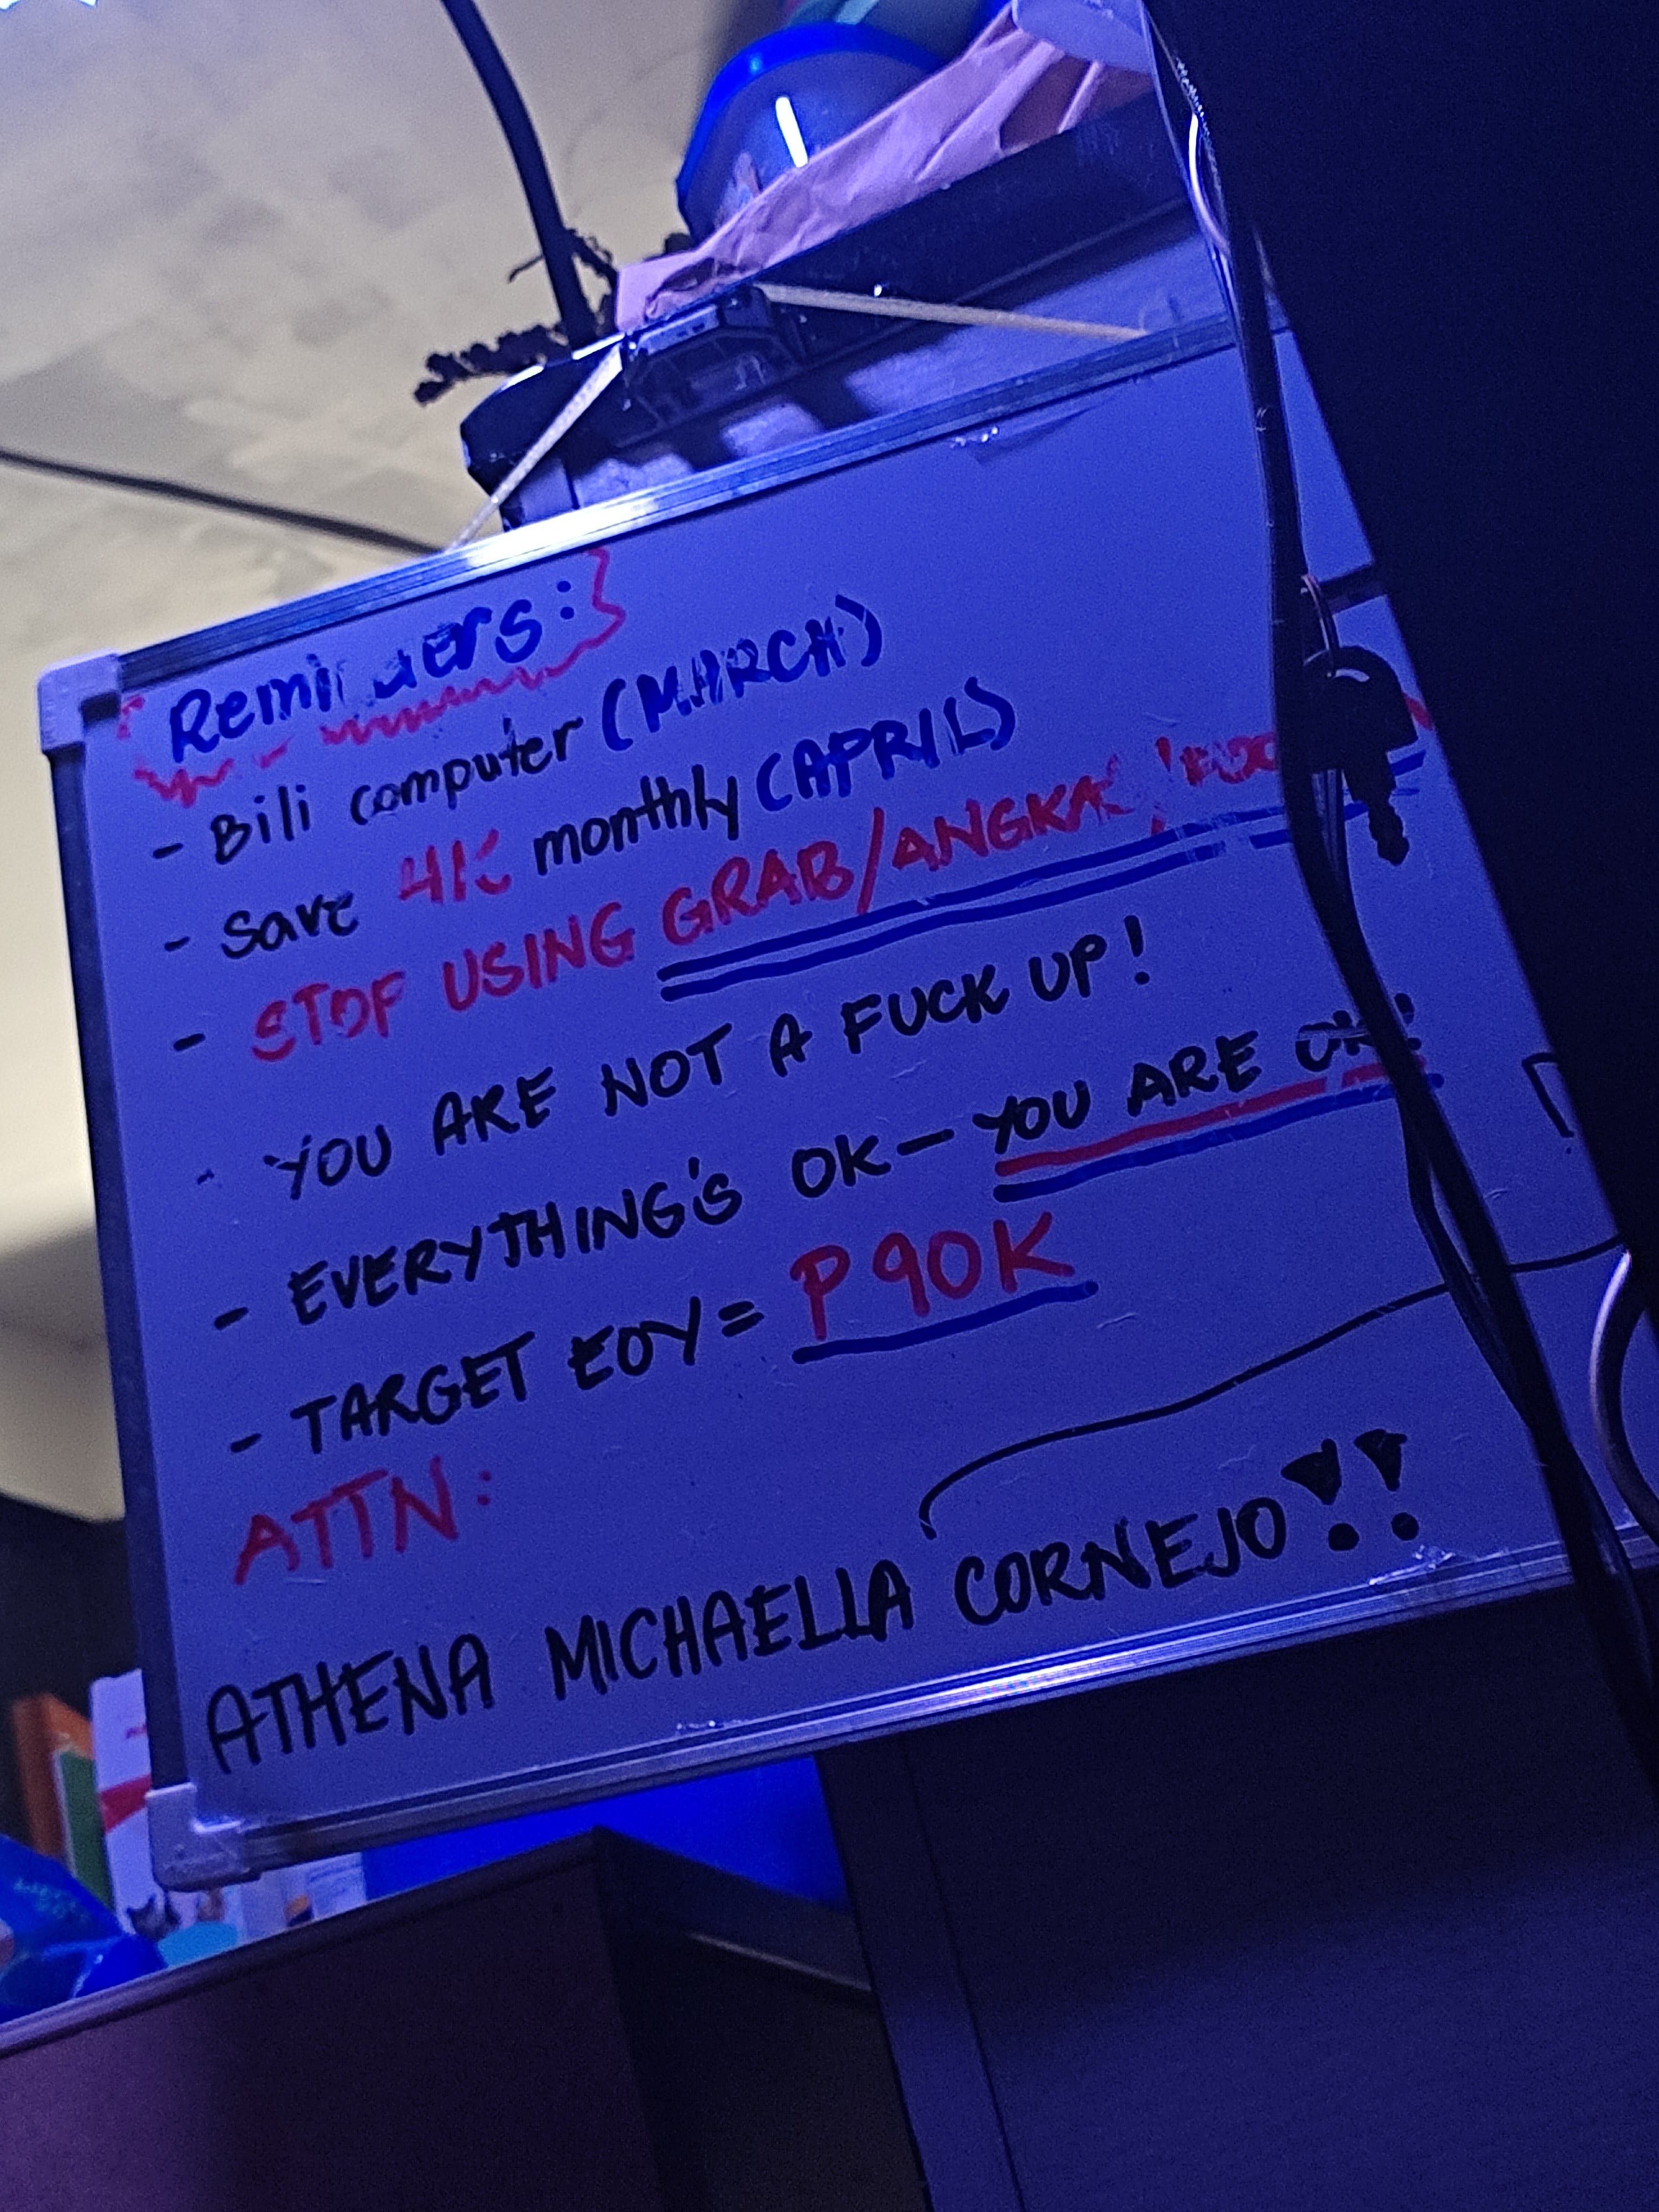 Reminders:
- Bili computer (MARCH)
- Save 4K monthly (APRIL)
- STOP USING GRAB/ANGKAS
- YOU ARE NOT A FUCK UP!
- EVERYTHING'S OK - YOU ARE OK!
- TARGET EOY = P90K
ATTN:
ATHENA MICHAELLA CORNEJO!!